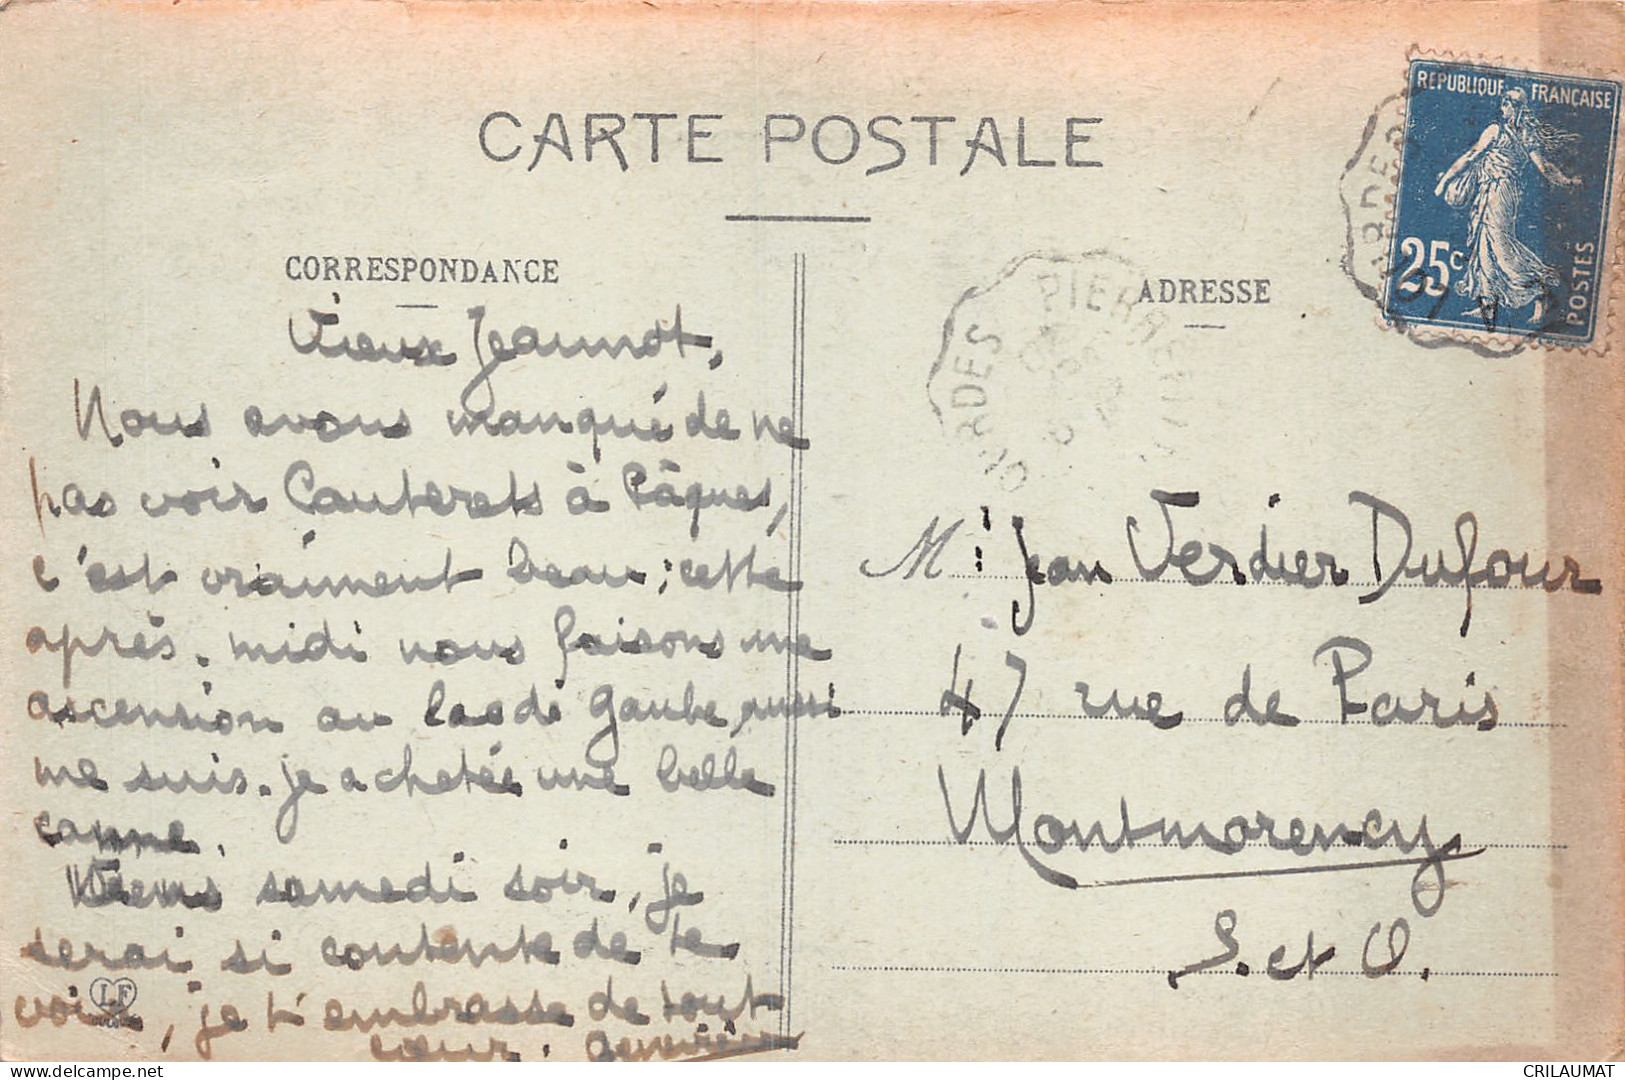 CARTE POSTALE
CORRESPONDANCE
Vieux Jeannot,
Nous avons manqué de ne
pas voir Cauterets à Pâques,
c'est vraiment beau ; cette
après-midi nous faisons une
ascension au lac de Gaube, aussi
me suis-je achetée une belle
canne.
Viens samedi soir, je
serai si contente de te
voir, je t'embrasse de tout
cœur. Geneviève
LF
ADRESSE
Mr Jean Verdier Dufour
47 rue de Paris
Montmorency
S. et O.
REPUBLIQUE FRANÇAISE
25c
POSTES
PIERREFITTE
LOURDES
CRILAUMAT